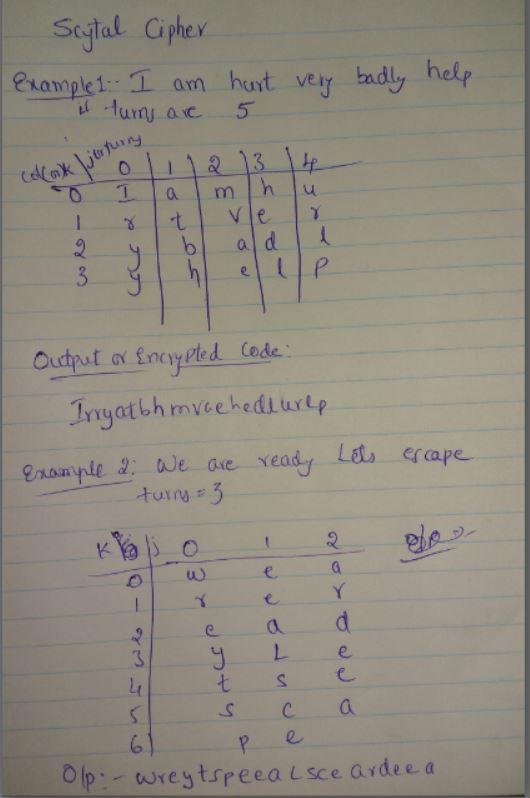 Scytal Cipher
Example1:- I am hurt very badly help
turns are 5
j(turns)
0 1 2 3 4
0 I a m h u
1 r t v e r
2 y b a d l
3 y h e l p
Output or Encrypted Code:
Irryatbhmvaehedlurlp
Example 2: We are ready Lets escape
turns = 3
K j 0 1 2
0 w e a
1 r e r
2 e a d
3 y L e
4 t s e
5 s c a
6 p e
O/p:- wreytspeeaLsceardeea